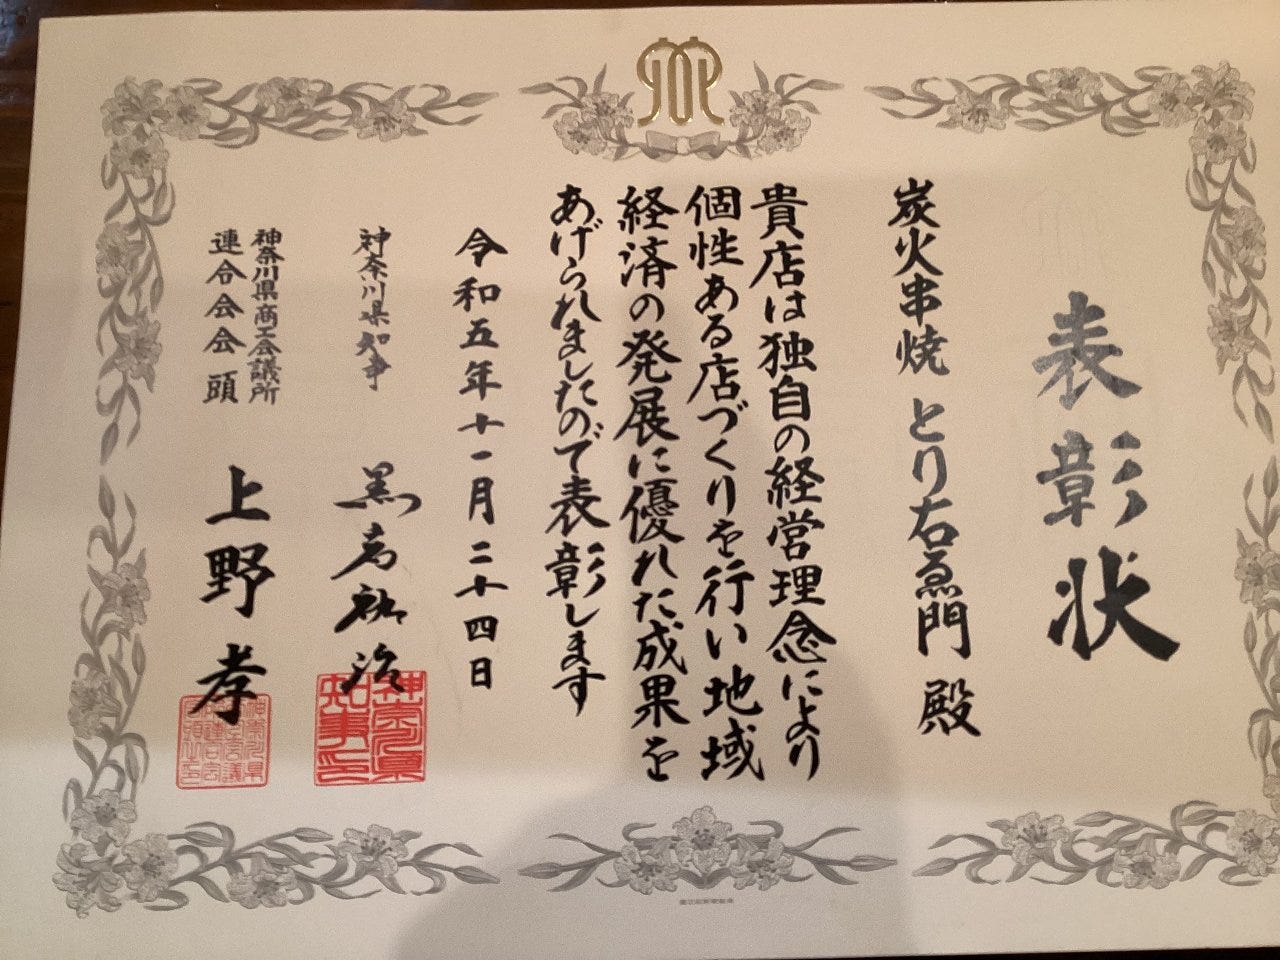 表彰状
炭火串焼 とり右ゑ門 殿
貴店は独自の経営理念により
個性ある店づくりを行い地域
経済の発展に優れた成果を
あげられましたので表彰します
令和五年十一月二十四日
神奈川県知事 黒岩祐治
神奈川県知事之印
神奈川県商工会議所
連合会会頭 上野孝